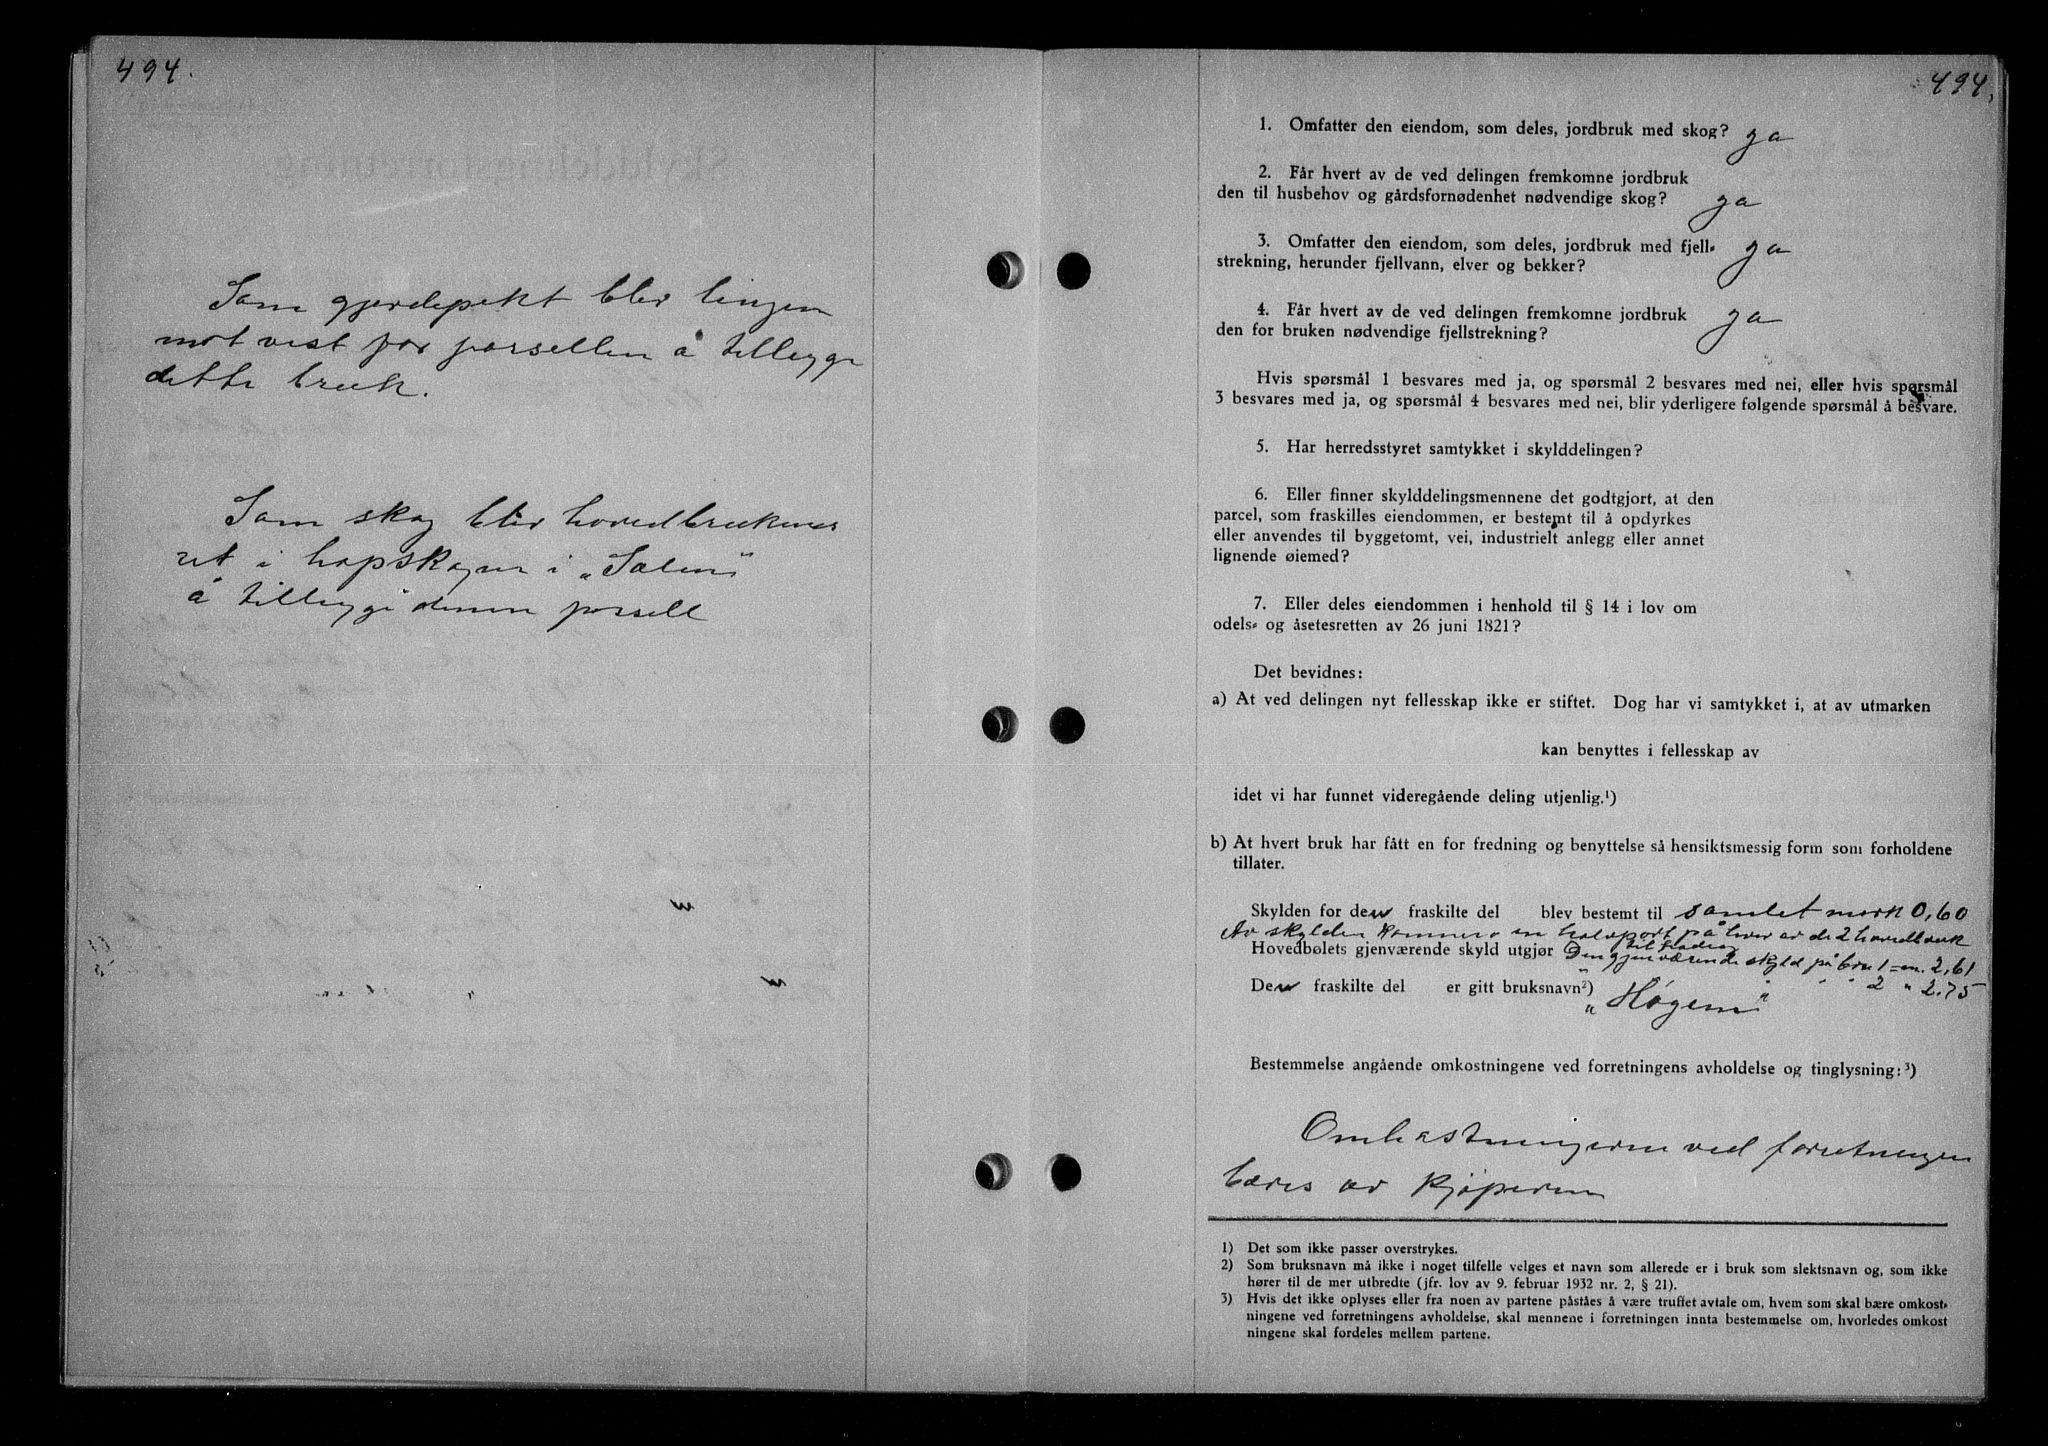 494.
Som gjerdeplikt blev linjen
mot vest for parsellen å tillegge
dette bruk.
Som skog blev hovedbrukenes
ret i hopskogen i „Sælen"
å tillegge denne parsell
494.
1. Omfatter den eiendom, som deles, jordbruk med skog? ja
2. Får hvert av de ved delingen fremkomne jordbruk
den til husbehov og gårdsfornødenhet nødvendige skog? ja
3. Omfatter den eiendom, som deles, jordbruk med fjell-
strekning, herunder fjellvann, elver og bekker? ja
4. Får hvert av de ved delingen fremkomne jordbruk
den for bruken nødvendige fjellstrekning? ja
Hvis spørsmål 1 besvares med ja, og spørsmål 2 besvares med nei, eller hvis spørsmål
3 besvares med ja, og spørsmål 4 besvares med nei, blir yderligere følgende spørsmål å besvare.
5. Har herredsstyret samtykket i skylddelingen?
6. Eller finner skylddelingsmennene det godtgjort, at den
parcel, som fraskilles eiendommen, er bestemt til å opdyrkes
eller anvendes til byggetomt, vei, industrielt anlegg eller annet
lignende øiemed?
7. Eller deles eiendommen i henhold til § 14 i lov om
odels- og åsetesretten av 26 juni 1821?
Det bevidnes:
a) At ved delingen nyt fellesskap ikke er stiftet. Dog har vi samtykket i, at av utmarken
kan benyttes i fellesskap av
idet vi har funnet videregående deling utjenlig.¹)
b) At hvert bruk har fått en for fredning og benyttelse så hensiktsmessig form som forholdene
tillater.
Skylden for den fraskilte del blev bestemt til samlet mork 0,60
Av skylden kommer en halvport på hver av de 2 hovedbruk
Hovedbølets gjenværende skyld utgjør Den gjenværende skyld på bru 1 = m. 2,61
" " " 2 " 2.75
Den fraskilte del er gitt bruksnavn²) „Høgem"
Bestemmelse angående omkostningene ved forretningens avholdelse og tinglysning:³)
Omkostningerne ved forretningen
bæres av kjøperen
1) Det som ikke passer overstrykes.
2) Som bruksnavn må ikke i noget tilfelle velges et navn som allerede er i bruk som slektsnavn og, som ikke
hører til de mer utbredte (jfr. lov av 9. februar 1932 nr. 2, § 21).
3) Hvis det ikke oplyses eller fra noen av partene påståes å være truffet avtale om, hvem som skal bære omkost-
ningene ved forretningens avholdelse, skal mennene i forretningen innta bestemmelse om, hvorledes omkost
ningene skal fordeles mellem partene.